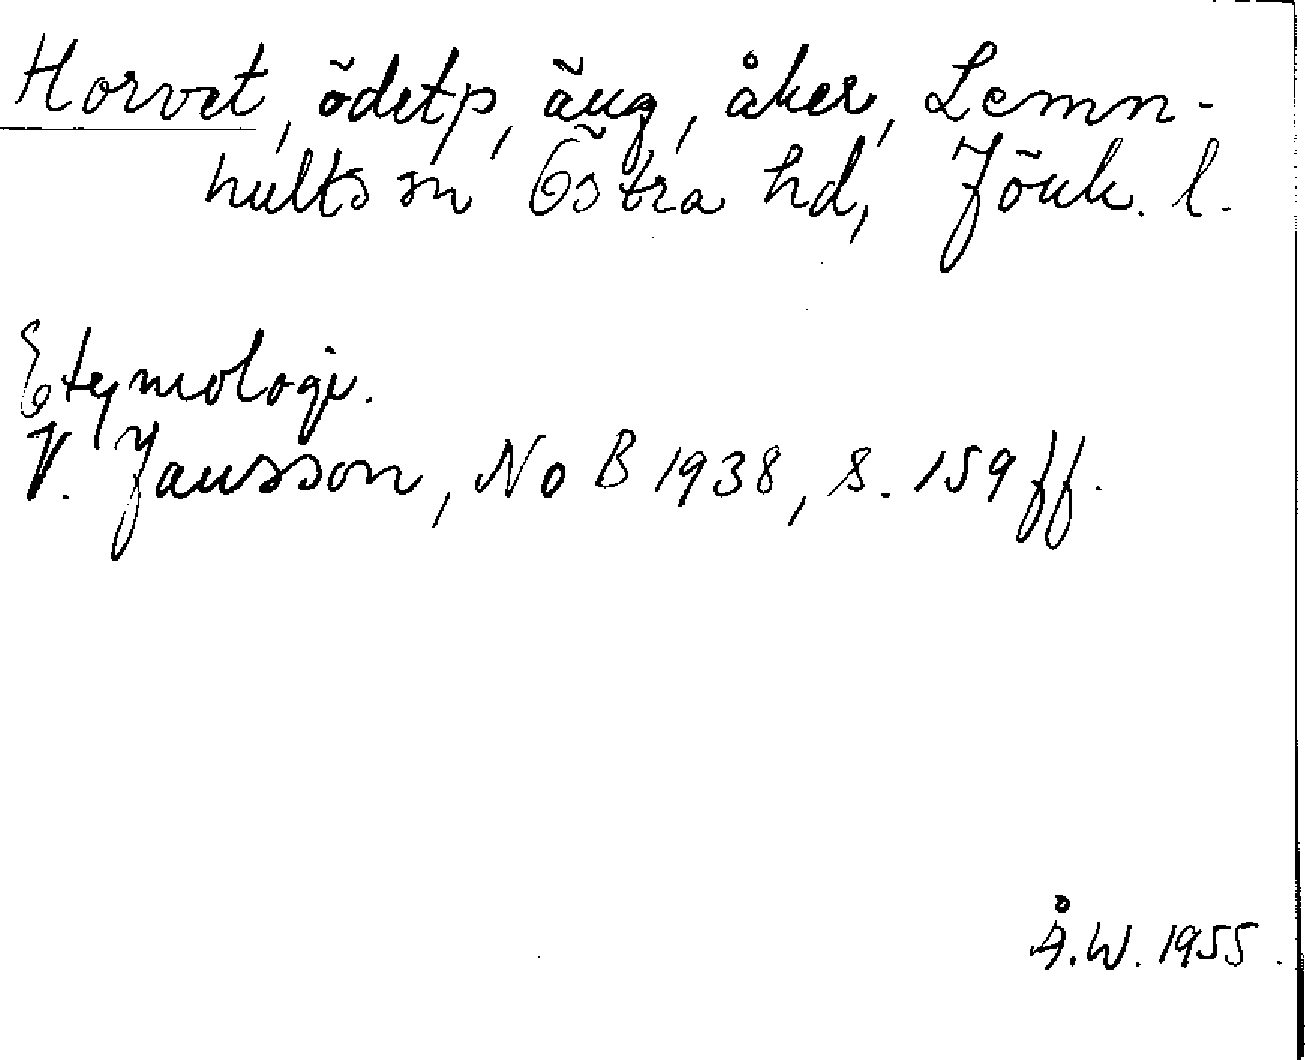 Horvet, ödetp, äng, åker, Lemn-
hults sn Östra hd, Jönk. l.
Etymologi.
V. Jansson, NoB 1938, s. 159 ff.
Å.W. 1955.